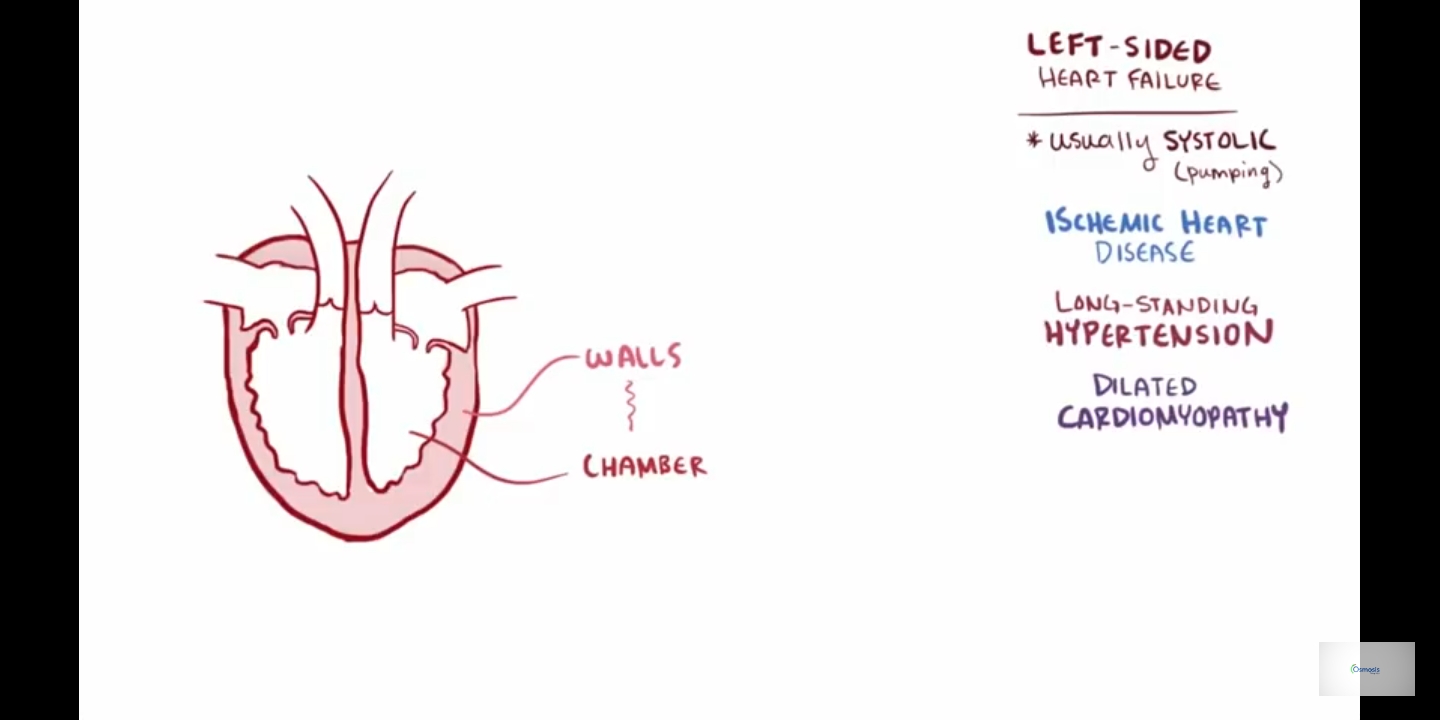 LEFT-SIDED
HEART FAILURE
* usually SYSTOLIC
(pumping)
ISCHEMIC HEART
DISEASE
LONG-STANDING
HYPERTENSION
DILATED
CARDIOMYOPATHY
WALLS
CHAMBER
Osmosis